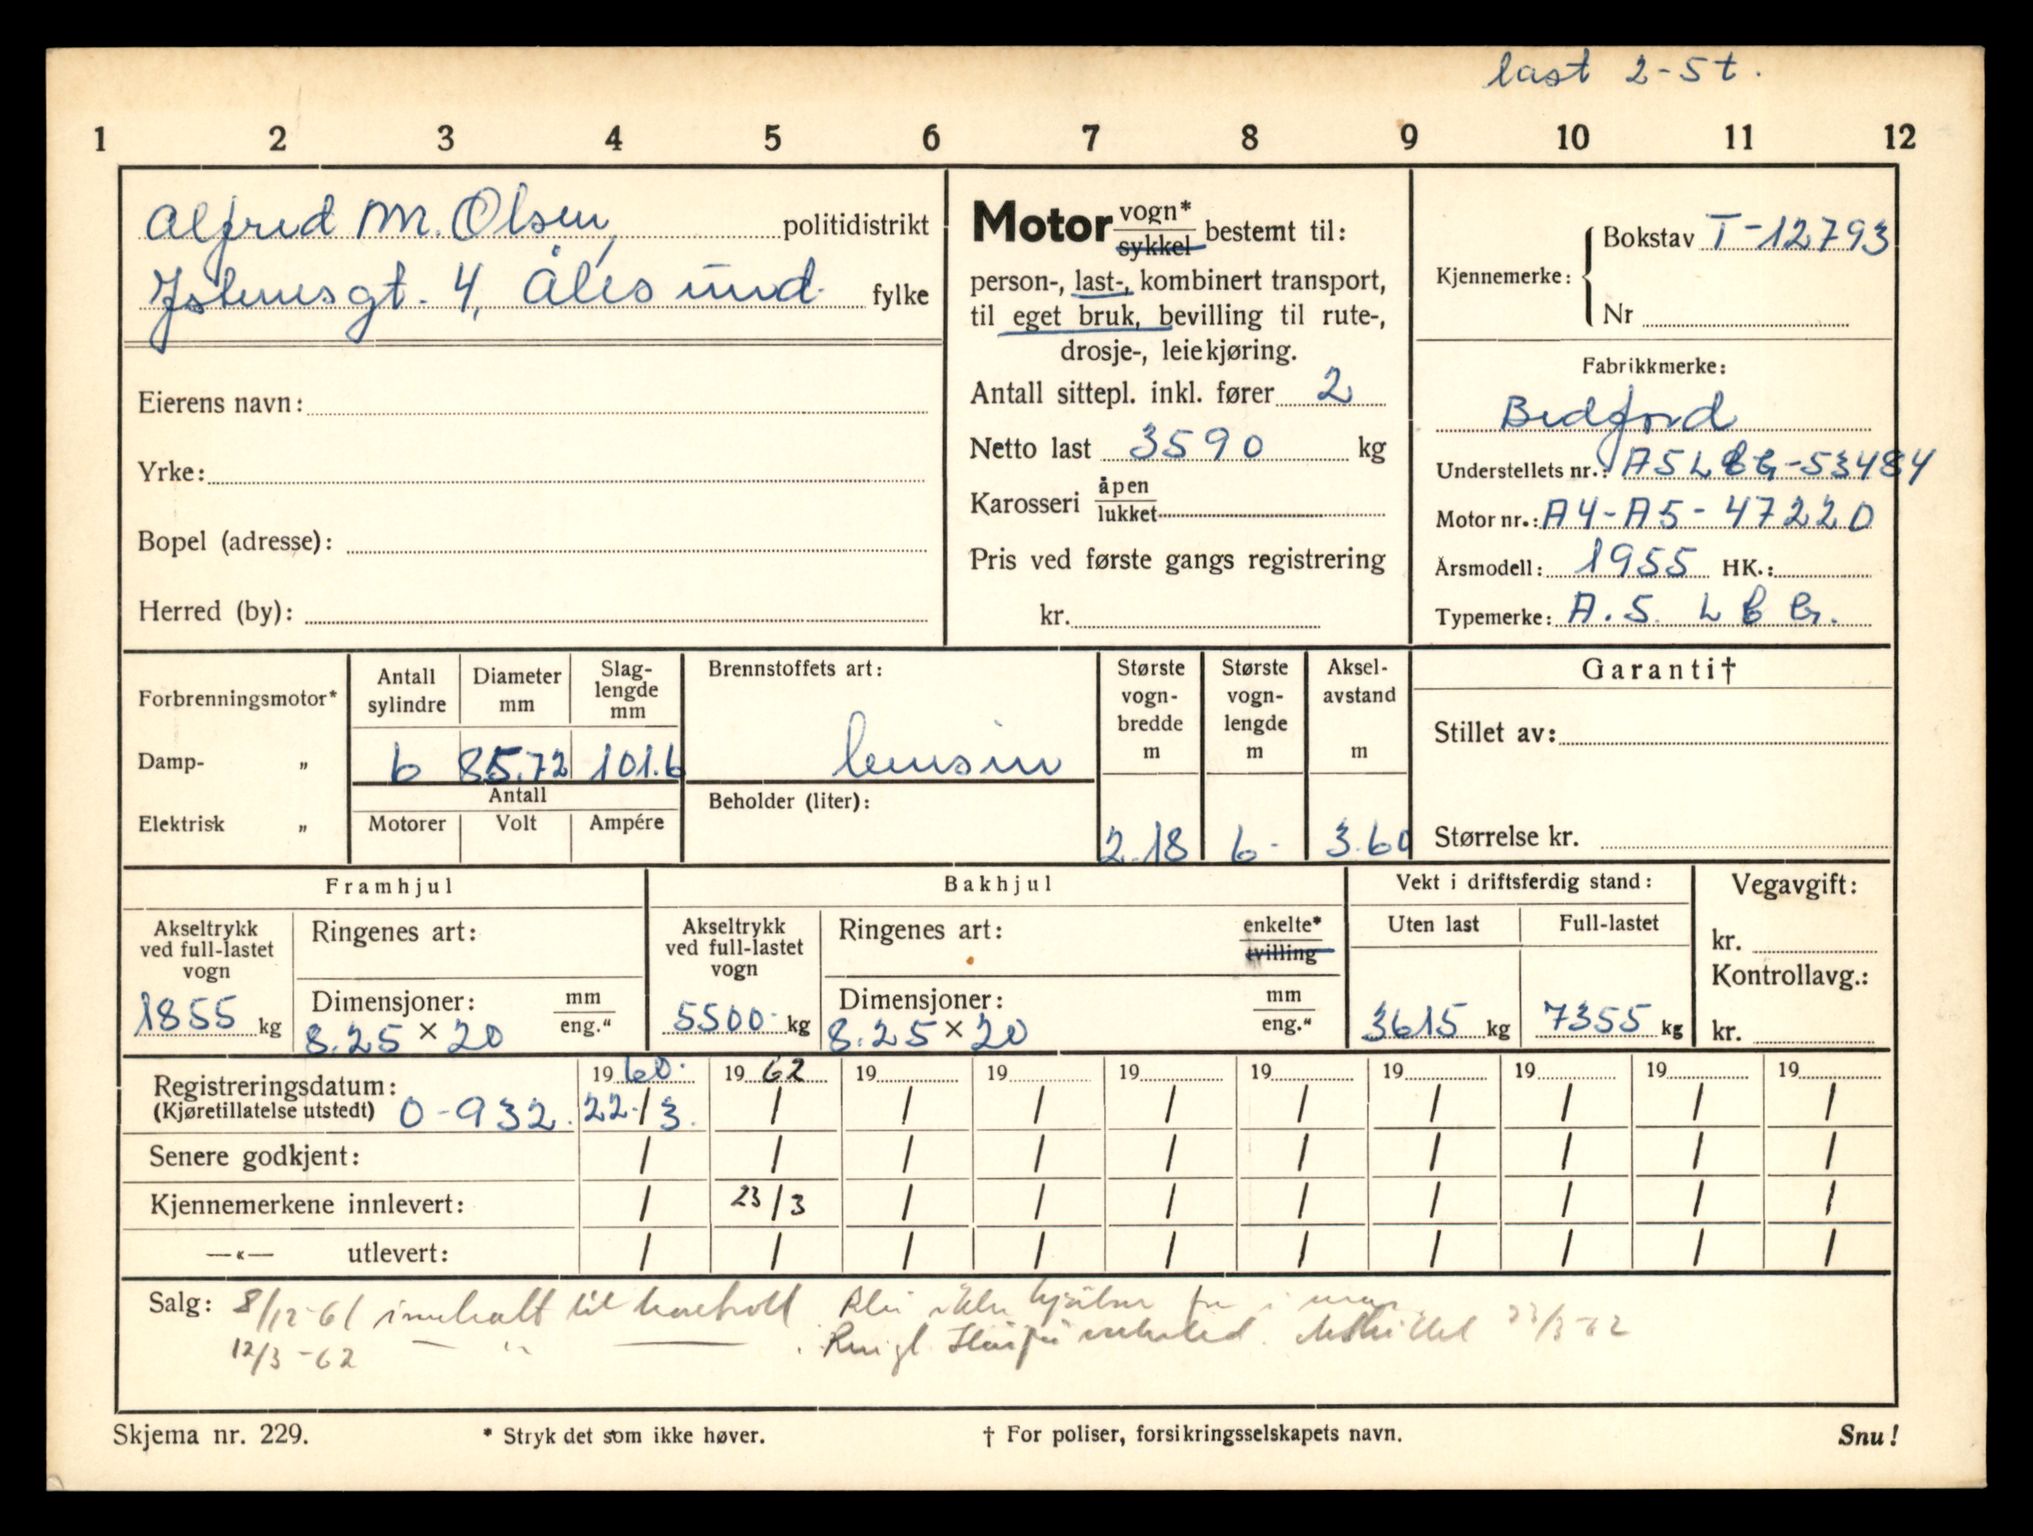 last 2-5t.
1 2 3 4 5 6 7 8 9 10 11 12
Alfred M. Olsen, politidistrikt
gt. 4, Ålesund. fylke
Eierens navn:
Yrke:
Bopel (adresse):
Herred (by):
Motor vogn* / sykkel bestemt til:
person-, last-, kombinert transport,
til eget bruk, bevilling til rute-,
drosje-, leiekjøring.
Antall sittepl. inkl. fører 2
Netto last 3590 kg
Karosseri åpen / lukket
Pris ved første gangs registrering
kr.
Kjennemerke: { Bokstav T-12793
Nr
Fabrikkmerke:
Bedford
Understellets nr.: A5LBG-53484
Motor nr.: A4-A5-47220
Årsmodell: 1955 HK.:
Typemerke: A.5. L B G.
Forbrenningsmotor*
Damp- „
Elektrisk „
Antall sylindre Diameter mm Slag-lengde mm
6 85.72 101.6
Antall
Motorer Volt Ampére
Brennstoffets art:
bensin
Beholder (liter):
Største vogn-bredde m Største vogn-lengde m Aksel-avstand m
2.18 6- 3.60
Garanti†
Stillet av:
Størrelse kr.
Framhjul
Akseltrykk ved full-lastet vogn
1855 kg
Ringenes art:
Dimensjoner: mm / eng."
8.25 × 20
Bakhjul
Akseltrykk ved full-lastet vogn
5500- kg
Ringenes art: enkelte* / tvilling
Dimensjoner: mm / eng."
8.25 × 20
Vekt i driftsferdig stand:
Uten last Full-lastet
3615 kg 7355 kg
Vegavgift:
kr.
Kontrollavg.:
kr.
Registreringsdatum: 19 60. 19 62 19 19 19 19 19 19 19 19
(Kjøretillatelse utstedt) 0-932. 22./3. / / / / / / / / /
Senere godkjent: / / / / / / / / / /
Kjennemerkene innlevert: / 23/3 / / / / / / / /
—«— utlevert: / / / / / / / / / /
Salg: 8/12-61 innkalt til kontroll. i
12/3-62 — " — . 23/3-62
Skjema nr. 229. * Stryk det som ikke høver. † For poliser, forsikringsselskapets navn. Snu!